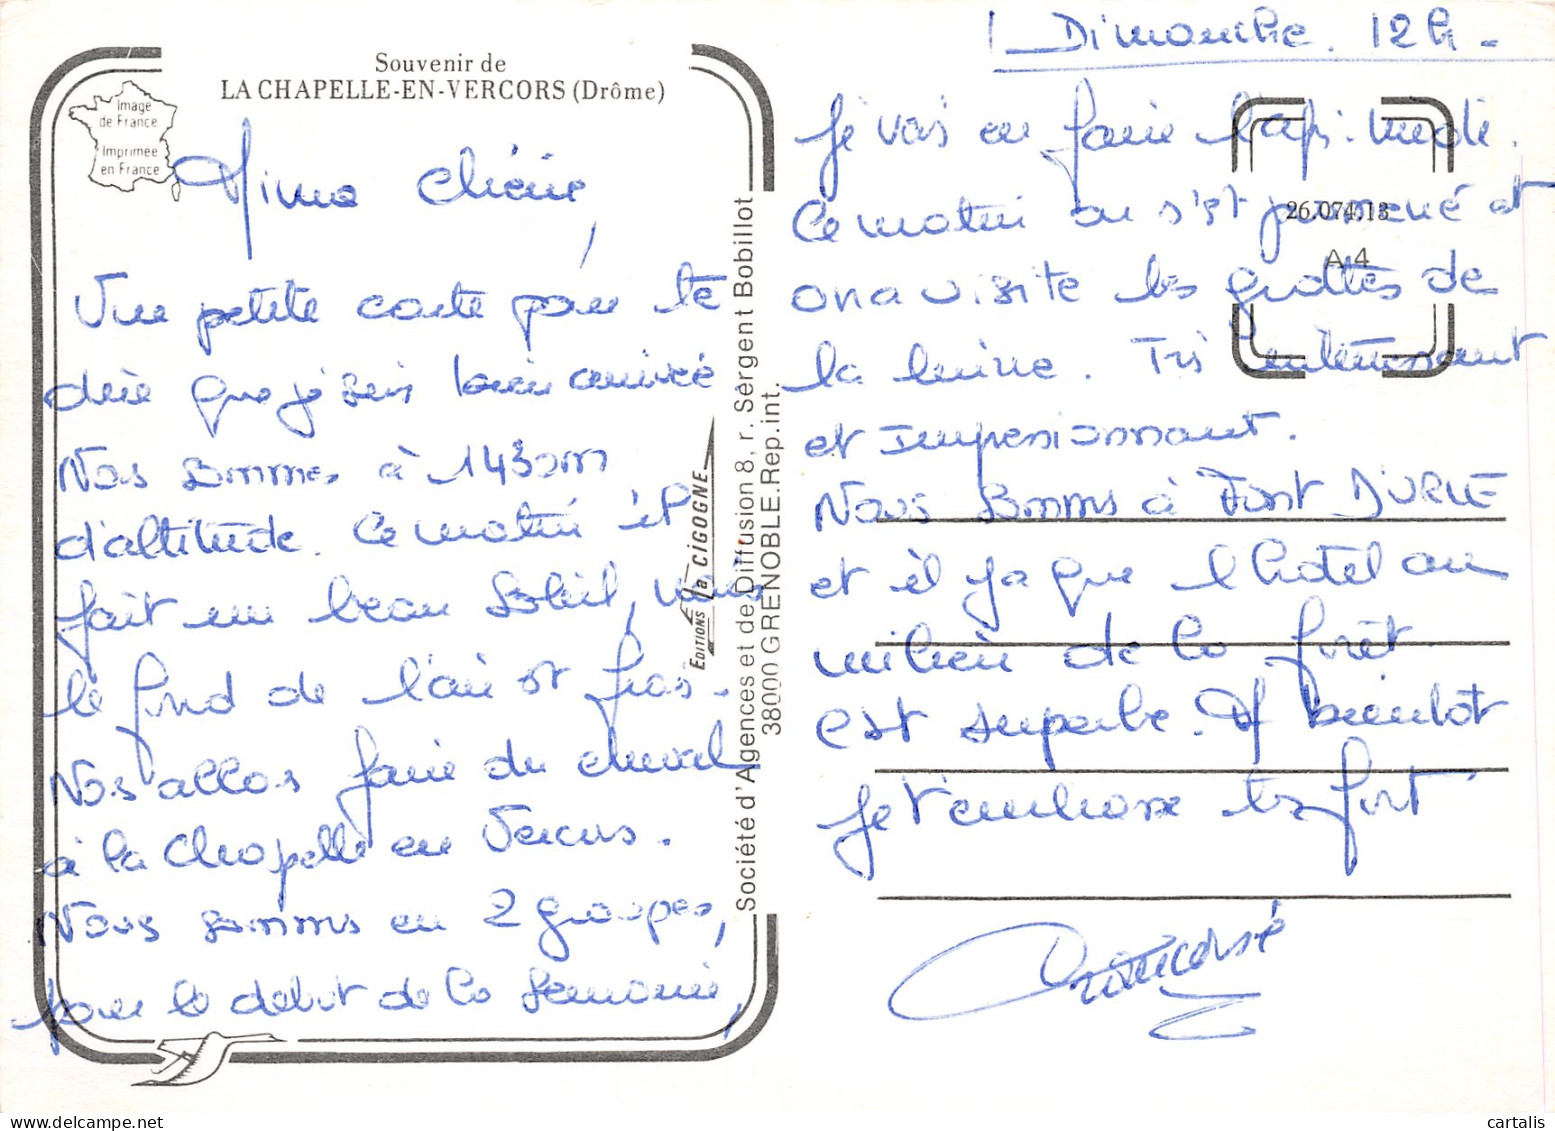 Souvenir de
LA CHAPELLE-EN-VERCORS (Drôme)
Image
de France
Imprimée
en France
Mima Chérie,
Une petite carte pour te
dire que je suis bien arrivée
Nous sommes à 1430m
d'altitude. Ce matin il
fait un beau soleil, mais
le fond de l'air est frais.
Nos allos faire du cheval
à la Chapelle en Vercors.
Nous sommes en 2 groupes,
pour le debut de la semaine,
EDITIONS la CIGOGNE
Société d'Agences et de Diffusion 8, r. Sergent Bobillot
38000 GRENOBLE. Rep. int.
Dimanche. 12h-
Je vais en faire l'apr. midi.
Ce matin on s'est promené et
on a visité les grottes de
la luire. Trs intéressant
et Impressionnant.
Nous sommes à Font D'URLE
et il y a que l'hotel au
milieu de la forêt.
est superbe. A bientot
Je t'embrasse trs fort
26.074.13
A 4